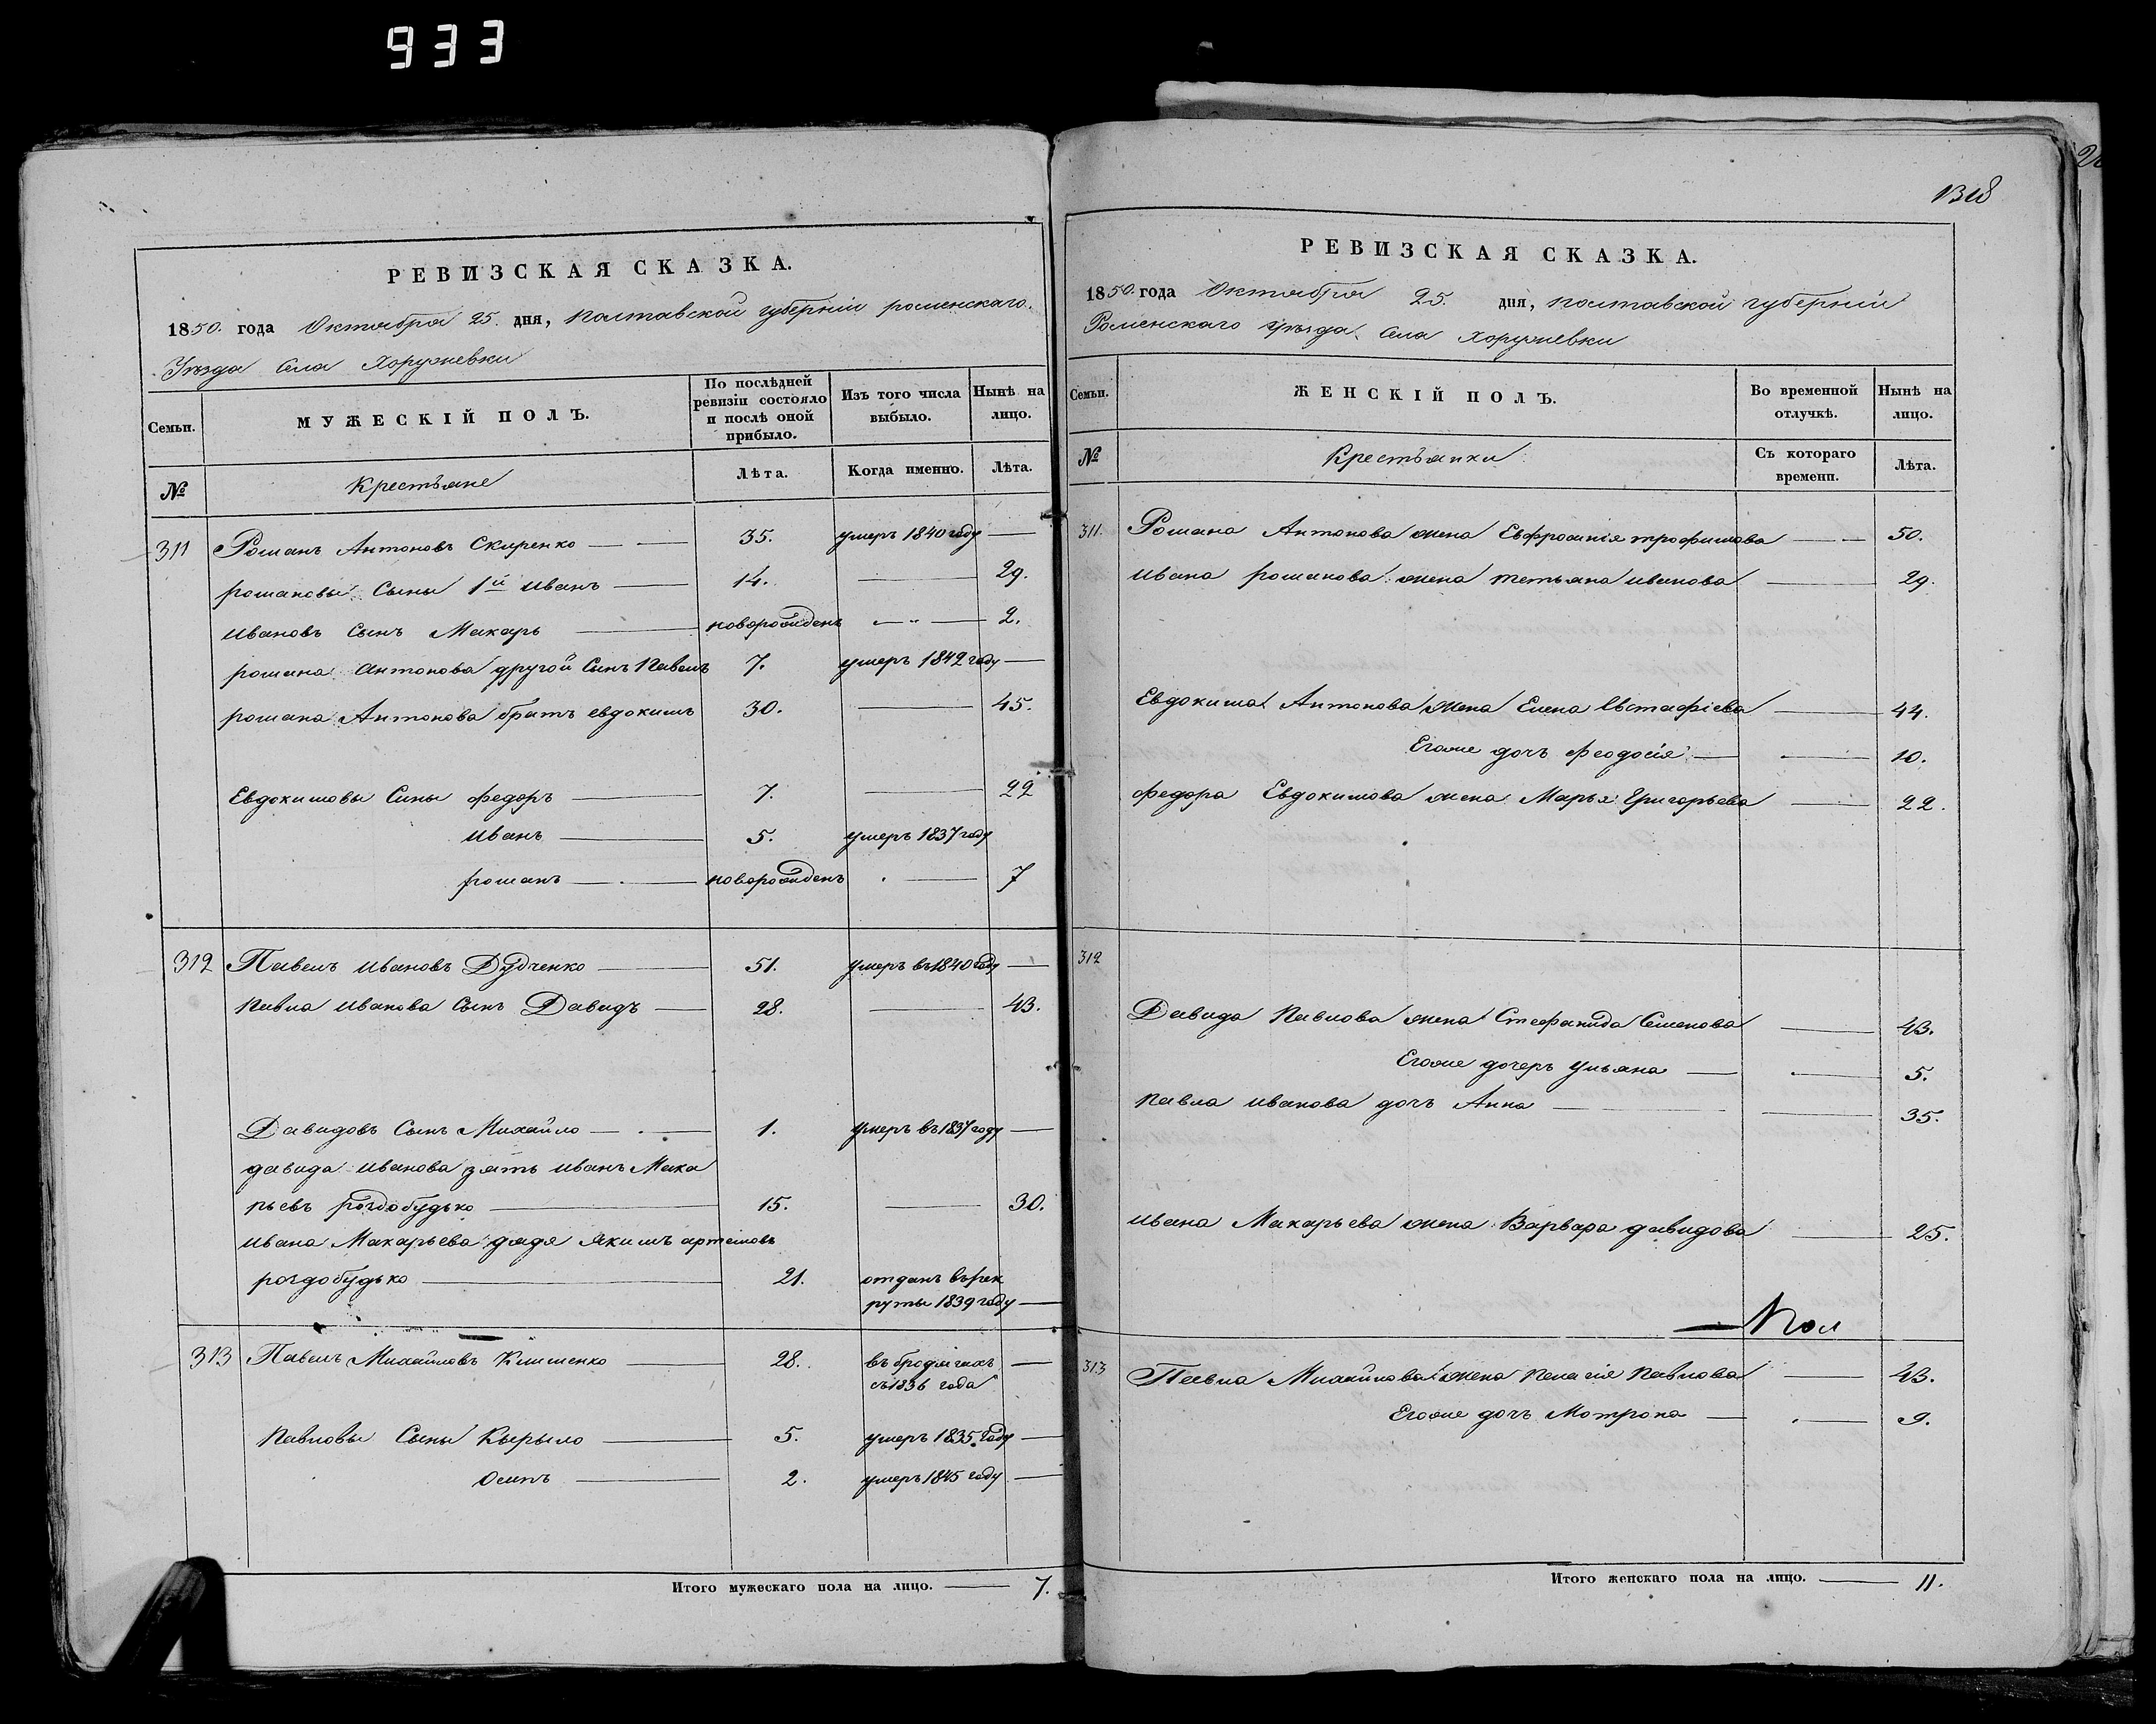 933
РЕВИЗСКАЯ СКАЗКА.
1850. года Октября 25. дня, полтавской губерніи роменскаго
Уѣзда Села Хоружевки
Семьи.
МУЖЕСКІЙ ПОЛЪ.
По послѣдней ревизіи состояло и послѣ оной прибыло.
Изъ того числа выбыло.
Нынѣ на лицо.
№
Крестьяне
Лѣта.
Когда именно.
Лѣта.
311 Романъ Антоновъ Скиренко — 35. умеръ 1840 году —
романовы Сыны 1й иванъ — 14. — 29.
ивановъ Сынъ Макаръ — новорожденъ — 2.
романа антонова другой Сынъ Павелъ 7. умеръ 1842 году —
романа Антонова братъ евдокимъ 30. — 45.
Евдокимовы Сины федоръ — 7. — 22
иванъ — 5. умеръ 1837 году
романъ — новорожденъ — 7
312 Павелъ ивановъ Дудченко — 51. умеръ въ 1840 году —
павла иванова Сынъ Давидъ — 28. — 43.
Давидовъ Сынъ Михайло — 1. умеръ въ 1837 году —
давида иванова зять иванъ Мака
рьевъ роздобудько — 15. — 30.
ивана Макарьева дядя якимъ артемовъ
роздобудько — 21. отданъ въ рек
руты 1839 году —
313 Павелъ Михайловъ Клименко — 28. въ бродягахъ —
съ 1836 года
павловы Сыны Кырыло — 5. умеръ 1835. году —
осипъ — 2. умеръ 1845 году —
Итого мужескаго пола на лицо. — 7.
РЕВИЗСКАЯ СКАЗКА.
1850. года Октября 25. дня, полтавской губерніи
Роменскаго уѣзда Села Хоружевки
Семьи.
ЖЕНСКІЙ ПОЛЪ.
Во временной отлучкѣ.
Нынѣ на лицо.
№
Крестьянки
Съ котораго времени.
Лѣта.
311. Романа Антонова жена Евфросинія трофимова — 50.
ивана романова жена тетьяна иванова — 29.
Евдокима Антонова жена Елена Евстафіева — 44.
Егоже дочь феодосія — 10.
федора Евдокимова жена Марья Григорьева — 22.
312
Давида павлова жена Стефанида Семенова — 43.
Егоже дочерь ульяна — 5.
павла иванова дочь Анна — 35.
ивана Макарьева жена Варвара давидова — 25.
313 Павла Михайлова жена пелагія павлова — 43.
Егоже дочь Мотрона — 9.
Итого женскаго пола на лицо. — 11.